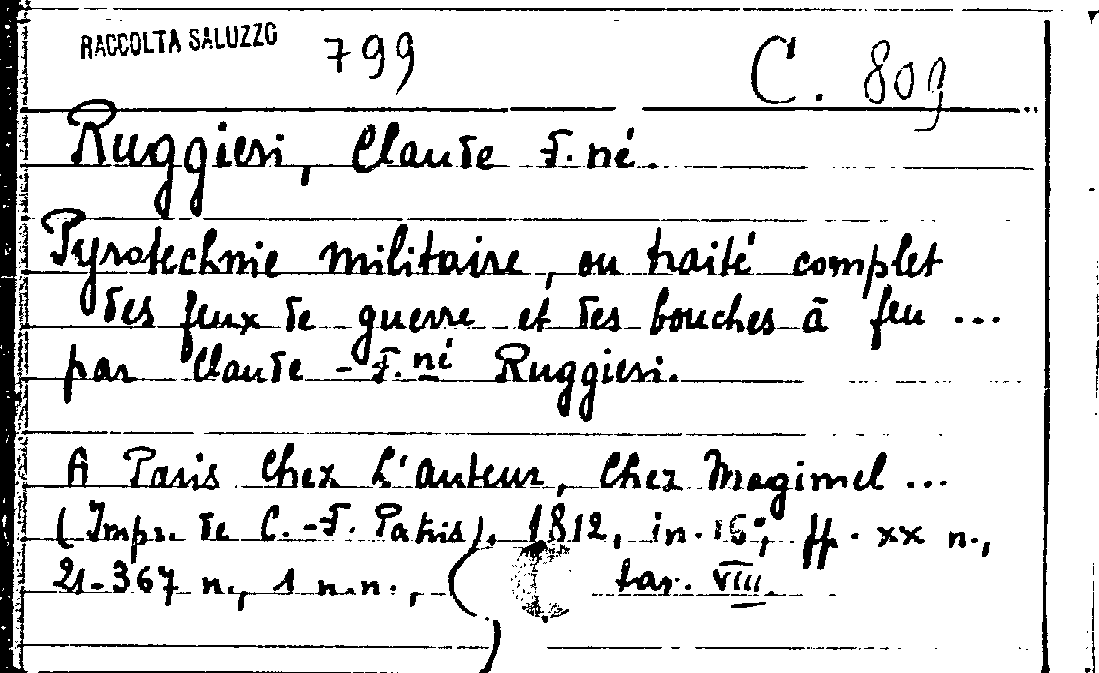 RACCOLTA SALUZZO 799 C. 809
Ruggieri, Claude F.né.
Pyrotechnie militaire, ou traité complet
des feux de guerre et des bouches à feu ...
par Claude - F.né Ruggieri.
A Paris Chez L'auteur, Chez Magimel ...
(Impr. de C.-F. Patris), 1812, in-16°; ff. xx n.,
21-367 n., 1 n.n., tav. VIII.